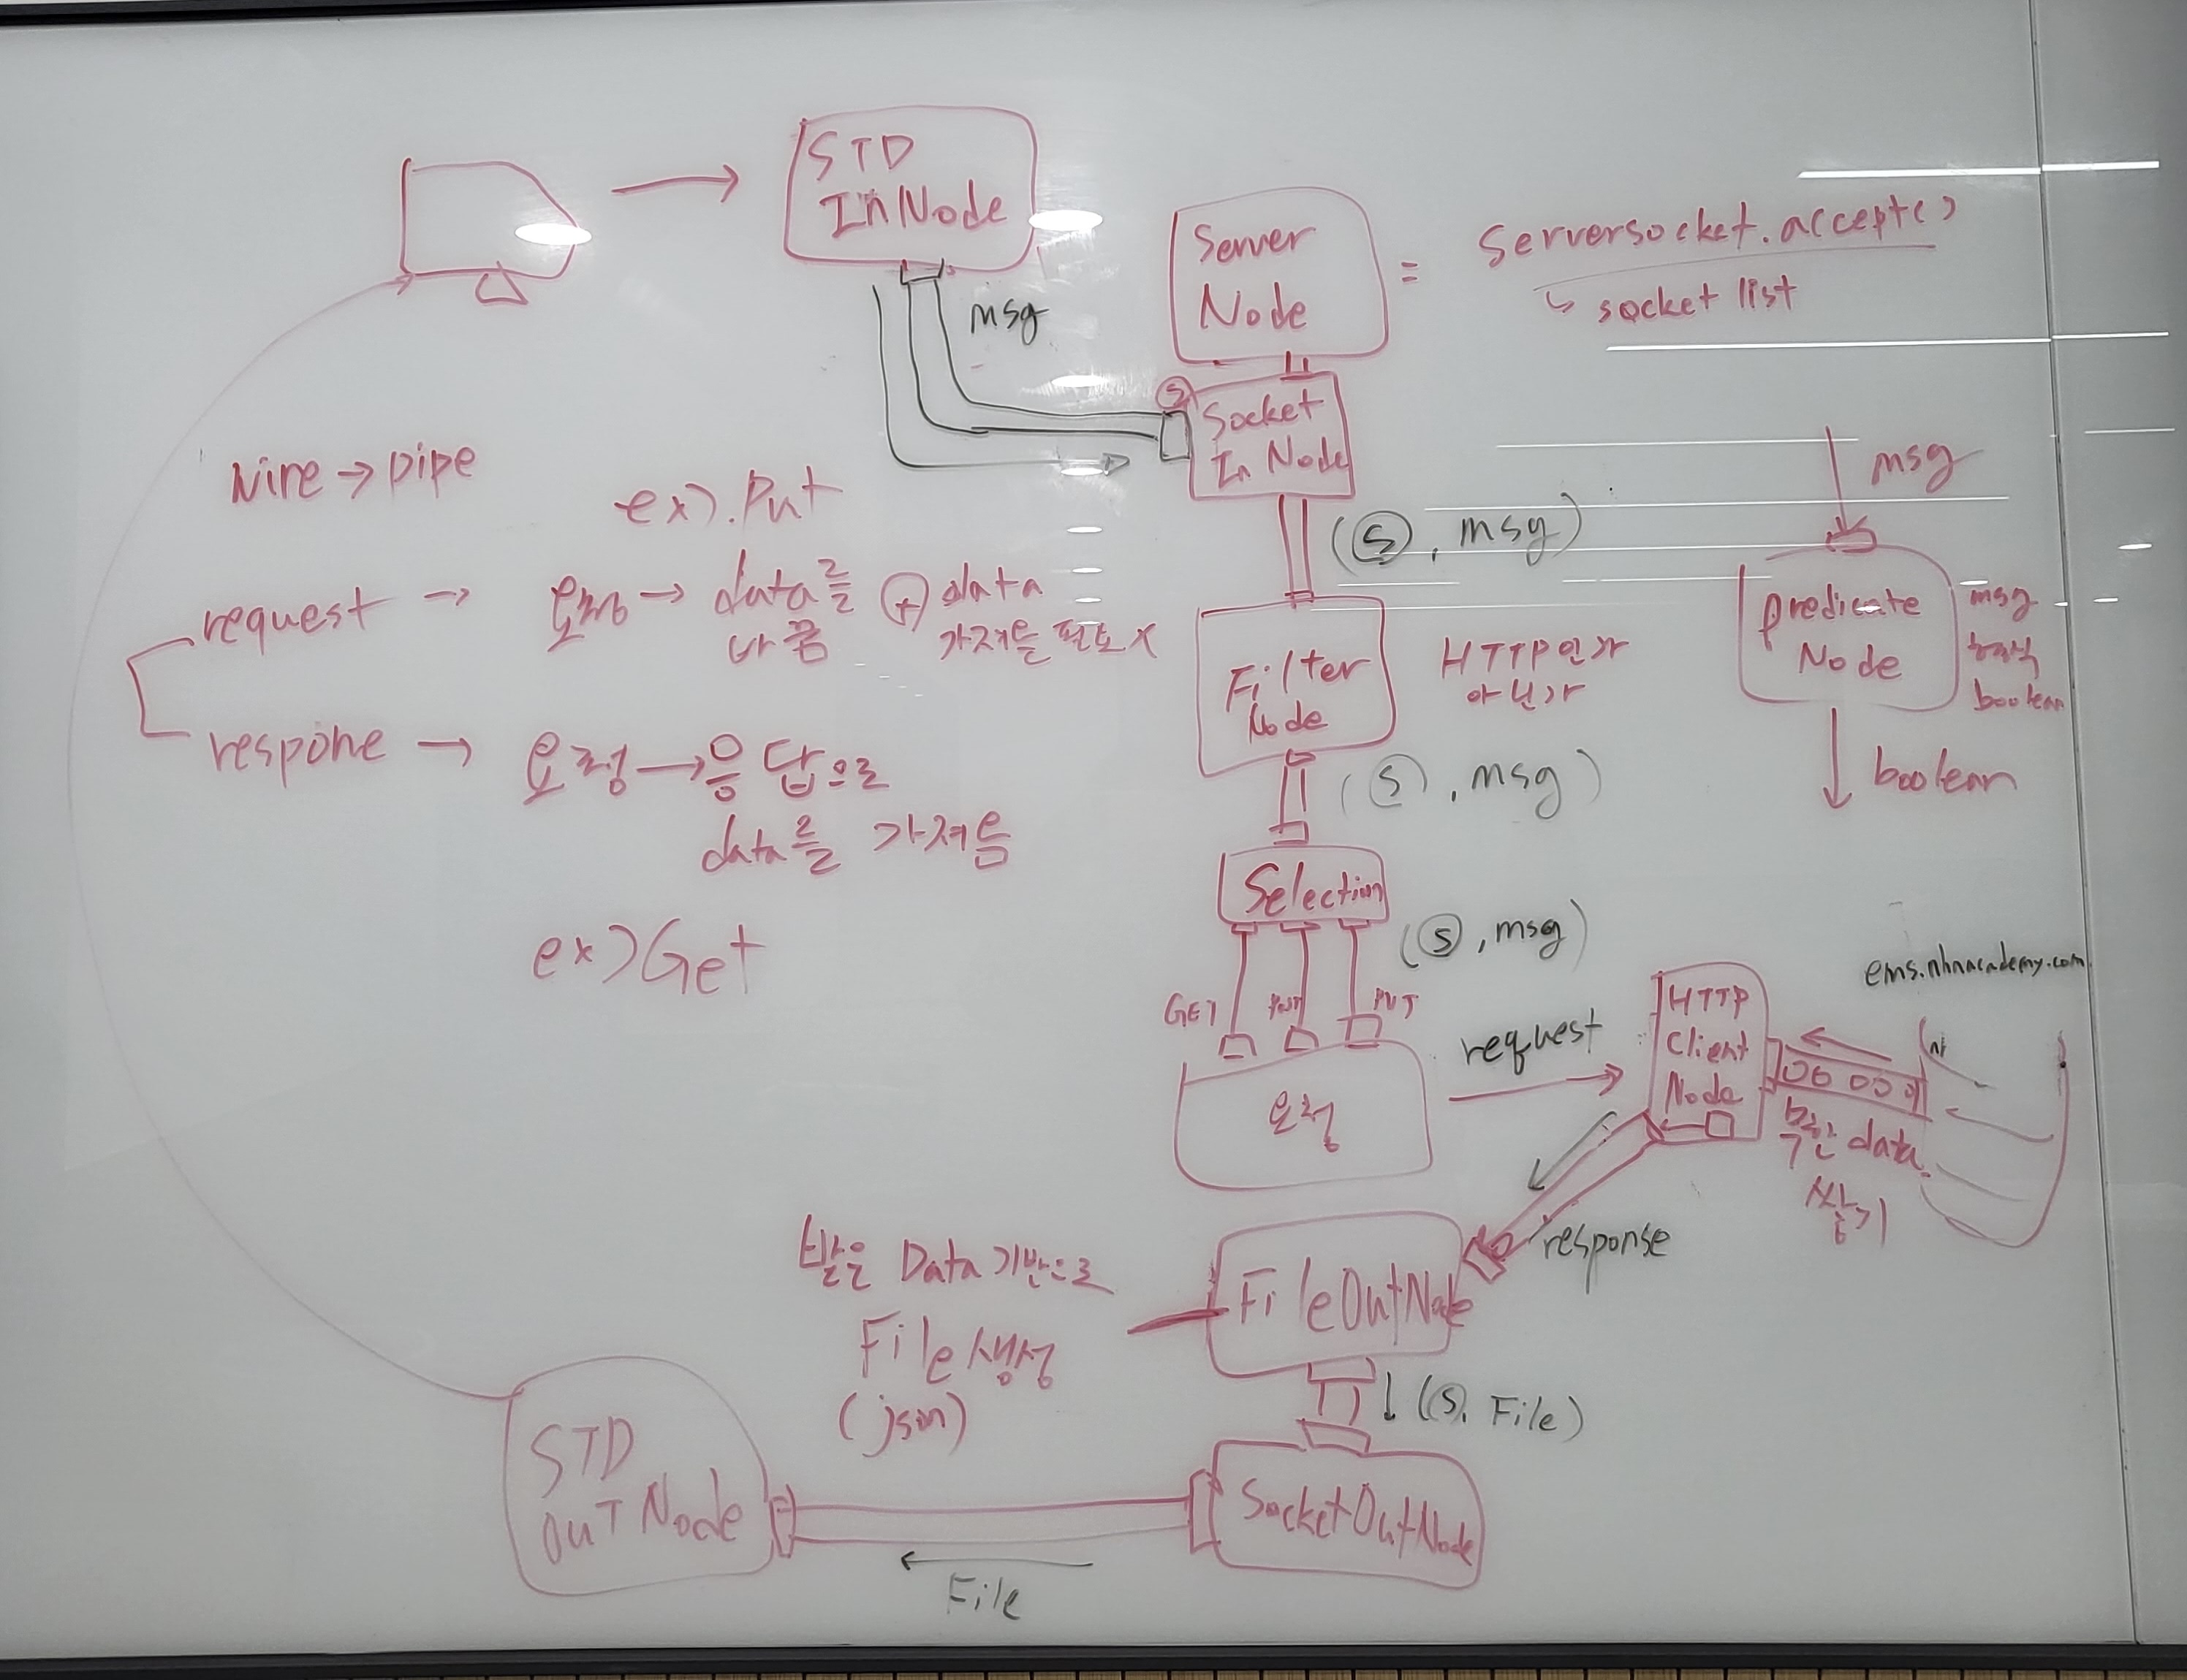 STD
InNode
msg
Server
Node
=
Serversocket.accept()
↳ socket list
S
Socket
In Node
(S, msg)
Wire → pipe
ex). Put
request → 요청 → data를
바꿈
+ data
가져올 필요 X
respone → 요청 → 응답으로
data를 가져옴
ex) Get
Filter
Node
HTTP인가
아닌가
(S, msg)
msg
predicate
Node
msg
boolean
boolean
Selection
(S, msg)
GET
POST
PUT
요청
request
HTTP
Client
Node
ems.nhnacademy.com
data
response
받은 Data 기반으로
File 생성
(json)
FileOutNode
(S, File)
SocketOutNode
File
STD
OUT Node